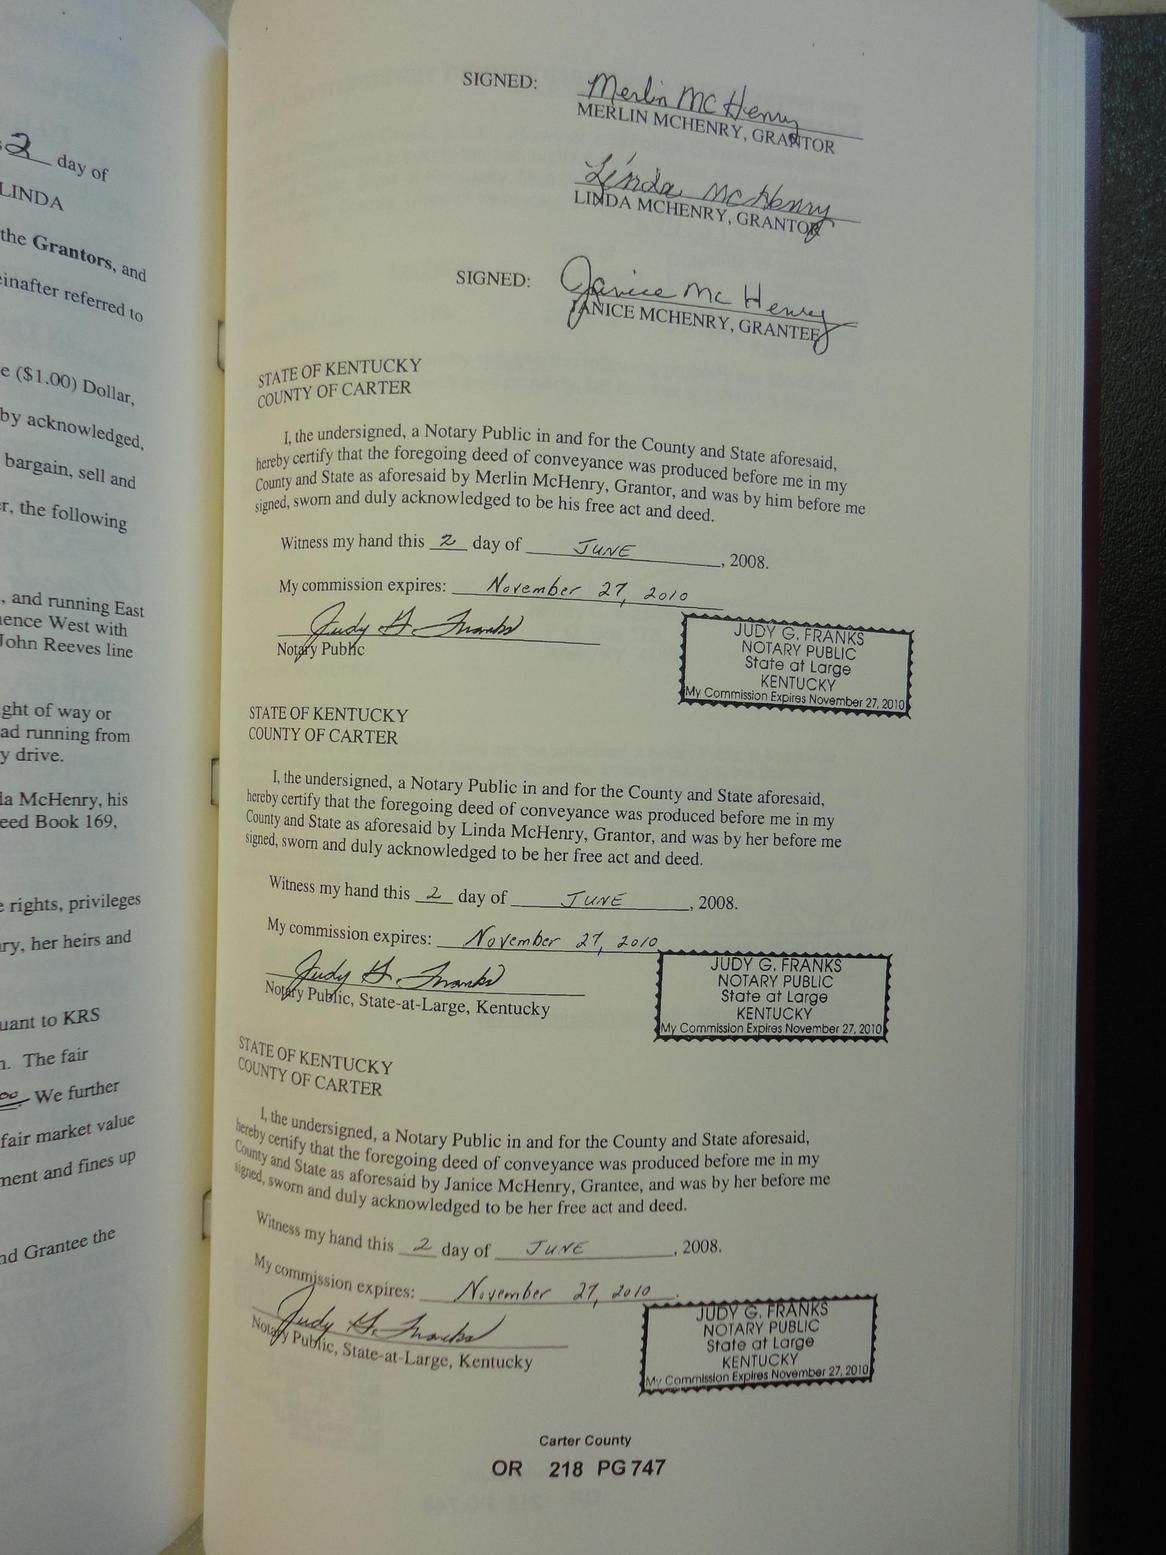 2 day of
LINDA
the Grantors, and
einafter referred to
e ($1.00) Dollar,
by acknowledged,
bargain, sell and
r, the following
, and running East
ence West with
John Reeves line
ght of way or
ad running from
y drive.
da McHenry, his
eed Book 169,
e rights, privileges
ry, her heirs and
uant to KRS
n. The fair
We further
fair market value
ment and fines up
nd Grantee the
SIGNED: Merlin McHenry
MERLIN MCHENRY, GRANTOR
Linda McHenry
LINDA MCHENRY, GRANTOR
SIGNED: Janice McHenry
JANICE MCHENRY, GRANTEE
STATE OF KENTUCKY
COUNTY OF CARTER
I, the undersigned, a Notary Public in and for the County and State aforesaid,
hereby certify that the foregoing deed of conveyance was produced before me in my
County and State as aforesaid by Merlin McHenry, Grantor, and was by him before me
signed, sworn and duly acknowledged to be his free act and deed.
Witness my hand this 2 day of JUNE, 2008.
My commission expires: November 27, 2010
Judy G. Franks
Notary Public
JUDY G. FRANKS
NOTARY PUBLIC
State at Large
KENTUCKY
My Commission Expires November 27, 2010
STATE OF KENTUCKY
COUNTY OF CARTER
I, the undersigned, a Notary Public in and for the County and State aforesaid,
hereby certify that the foregoing deed of conveyance was produced before me in my
County and State as aforesaid by Linda McHenry, Grantor, and was by her before me
signed, sworn and duly acknowledged to be her free act and deed.
Witness my hand this 2 day of JUNE, 2008.
My commission expires: November 27, 2010
Judy G. Franks
Notary Public, State-at-Large, Kentucky
JUDY G. FRANKS
NOTARY PUBLIC
State at Large
KENTUCKY
My Commission Expires November 27, 2010
STATE OF KENTUCKY
COUNTY OF CARTER
I, the undersigned, a Notary Public in and for the County and State aforesaid,
hereby certify that the foregoing deed of conveyance was produced before me in my
County and State as aforesaid by Janice McHenry, Grantee, and was by her before me
signed, sworn and duly acknowledged to be her free act and deed.
Witness my hand this 2 day of JUNE, 2008.
My commission expires: November 27, 2010.
Judy G. Franks
Notary Public, State-at-Large, Kentucky
JUDY G. FRANKS
NOTARY PUBLIC
State at Large
KENTUCKY
My Commission Expires November 27, 2010
Carter County
OR 218 PG 747